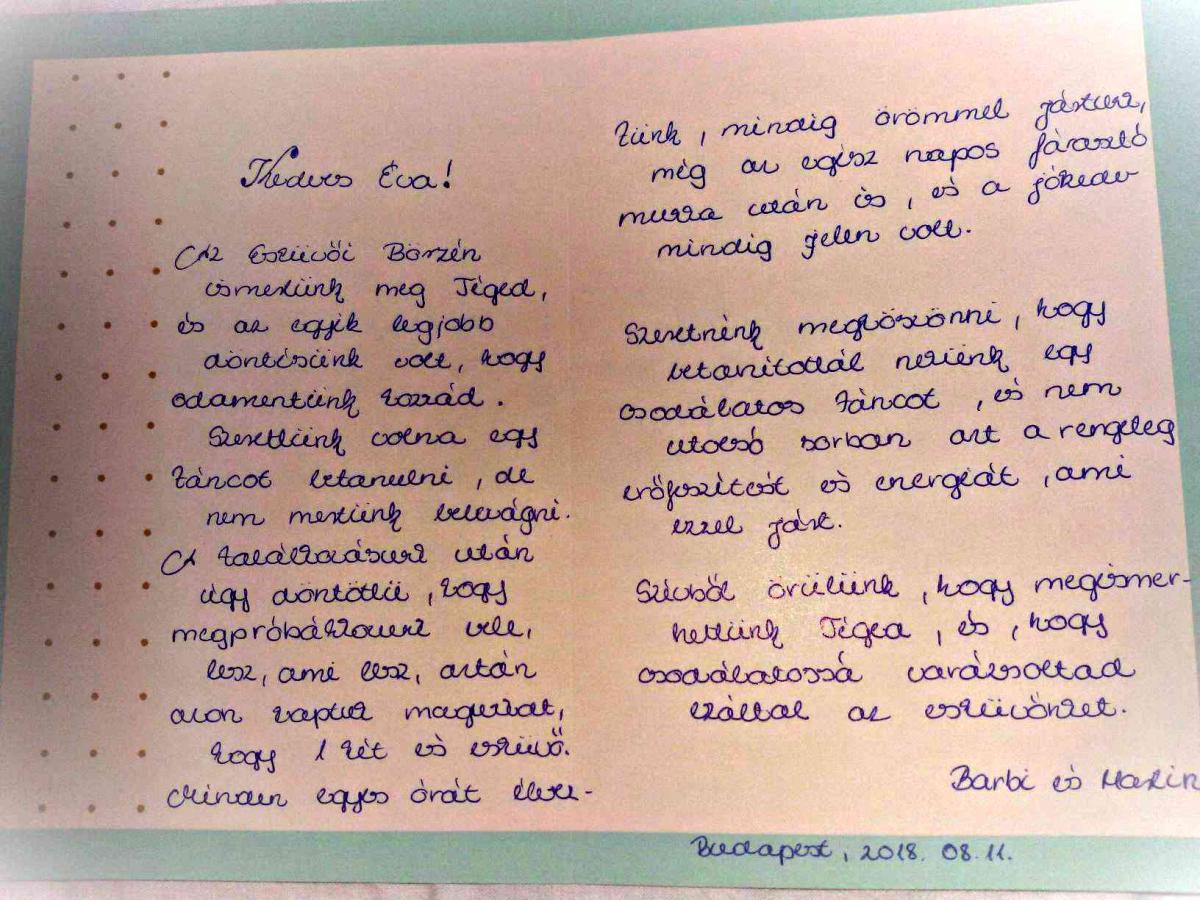 Kedves Éva!
Az Esküvői Börzén
ismertünk meg Téged,
és az egyik legjobb
döntésünk volt, hogy
odamentünk hozzád.
Szerettünk volna egy
táncot betanulni, de
nem mertünk belevágni.
A találkozásunk után
úgy döntöttü, hogy
megpróbálkozunk vele,
lesz, ami lesz, aztán
azon kaptuk magunkat,
hogy 1 hét és esküvő.
Minden egyes órát élvez-
tünk, mindig örömmel jártunk,
még az egész napos fárasztó
munka után is, és a jókedv
mindig jelen volt.
Szeretnénk megköszönni, hogy
betanítottál nekünk egy
csodálatos táncot, és nem
utolsó sorban azt a rengeteg
erőfeszítést és energiát, ami
ezzel járt.
Szívből örülünk, hogy megismer-
hettünk Téged, és, hogy
csodálatossá varázsoltad
ezáltal az esküvőnket.
Barbi és Martin
Budapest, 2018. 08. 11.